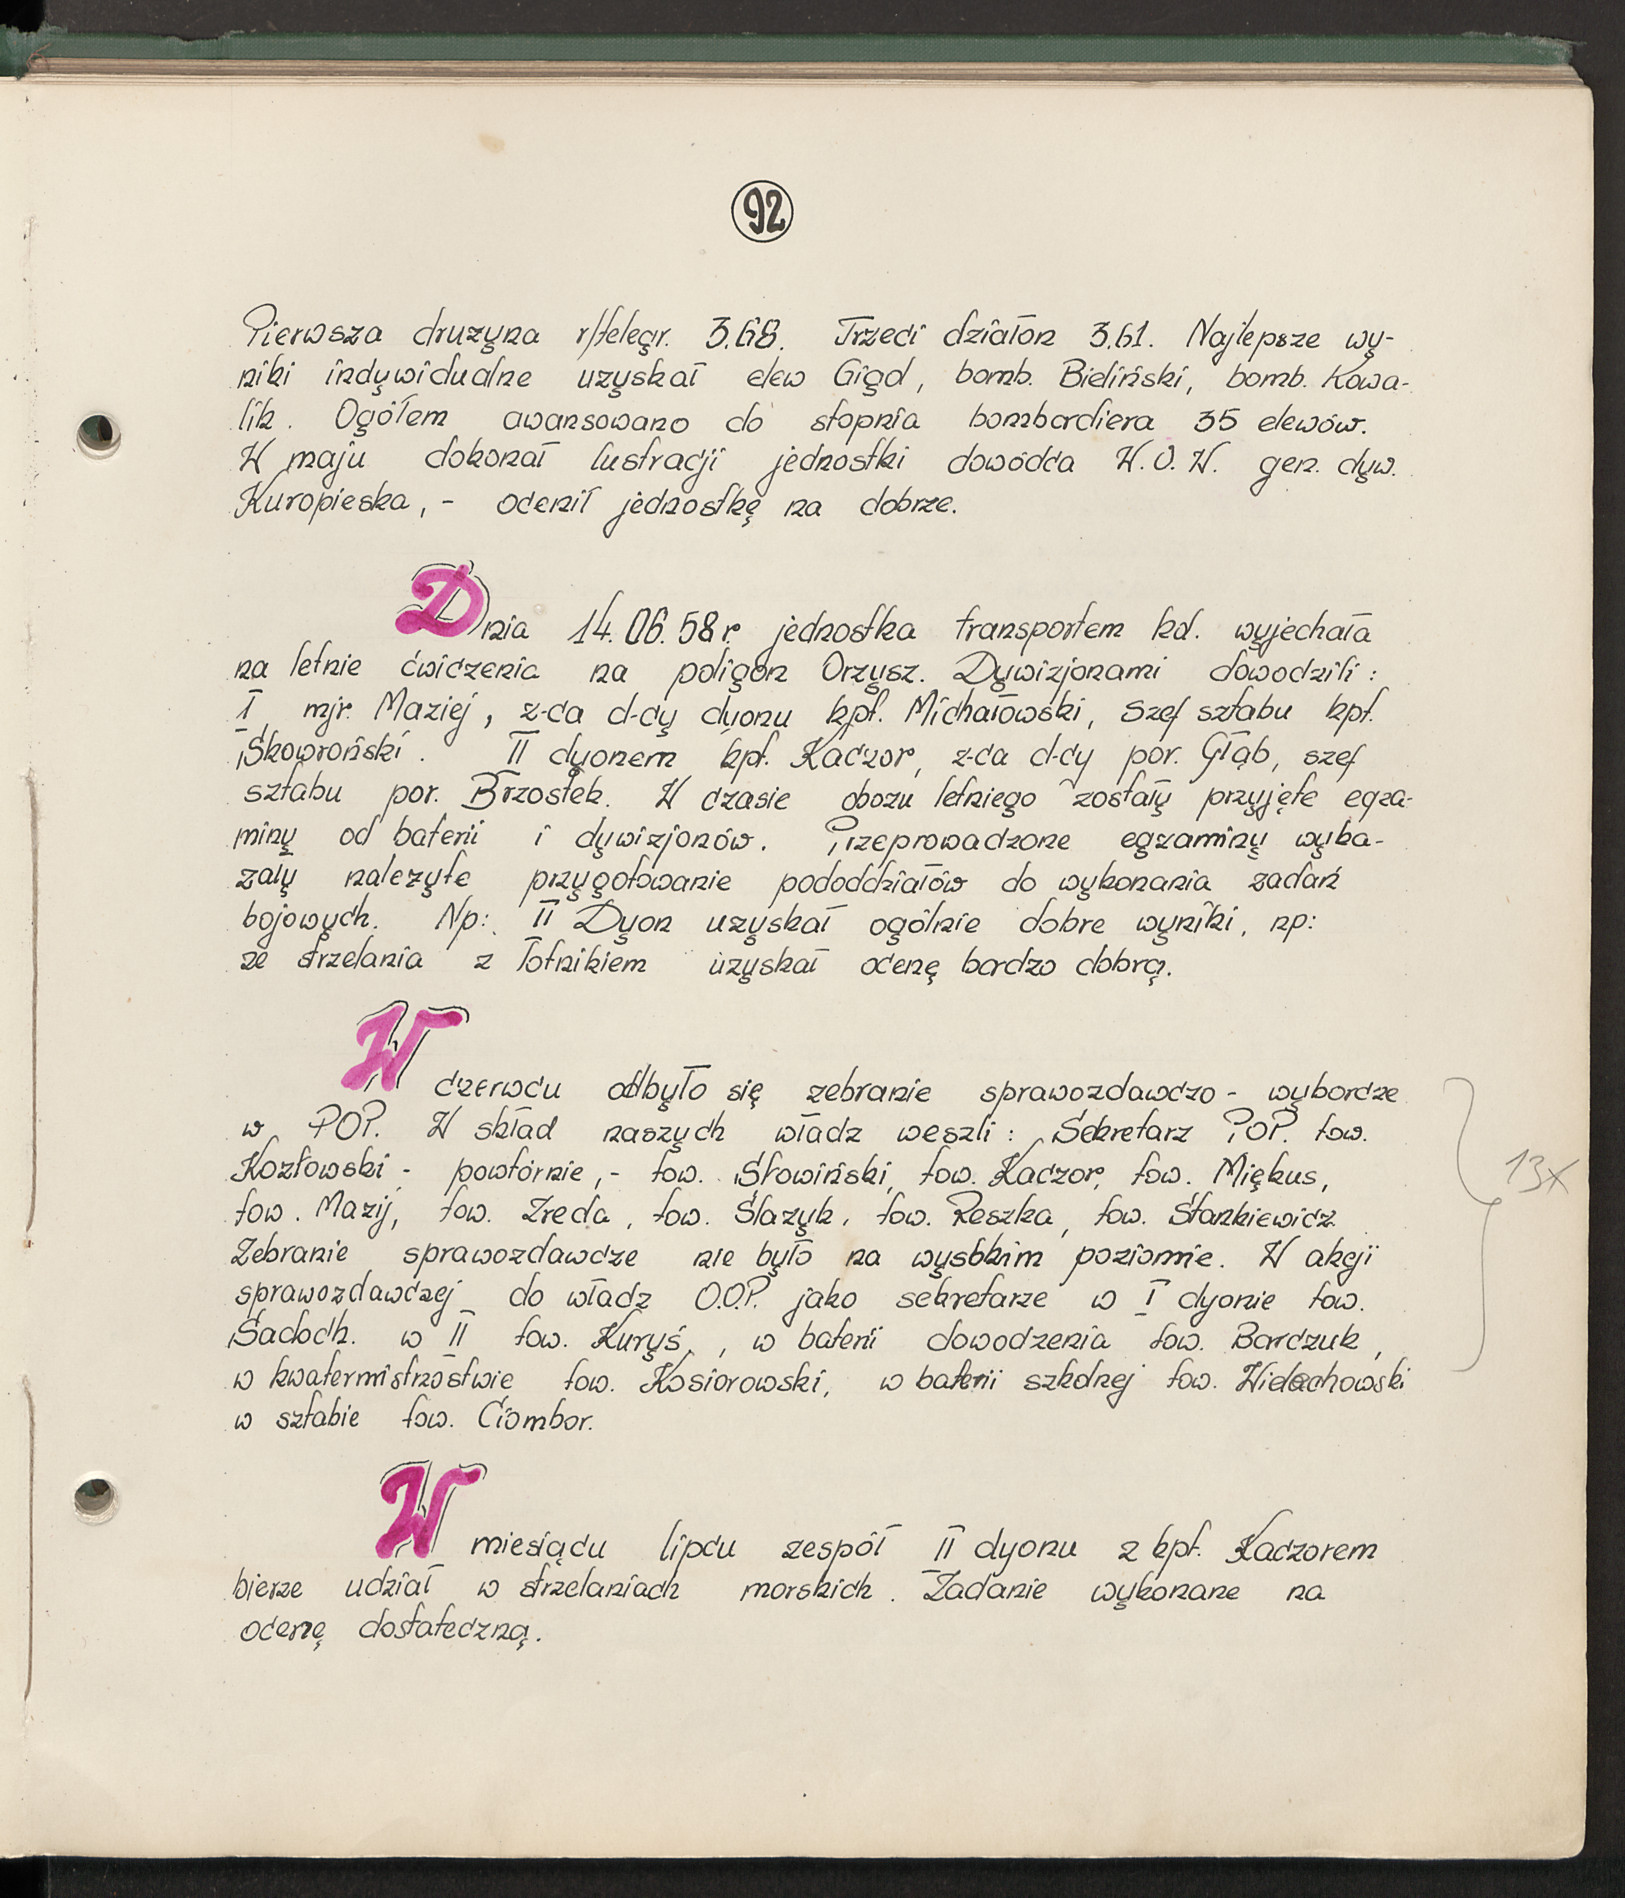 92
Pierwsza drużyna r/telegr. 3.68. Trzeci działon 3.61. Najlepsze wy-
niki indywidualne uzyskał elew Gigd, bomb. Bieliński, bomb. Kowa-
lik. Ogółem awansowano do stopnia bombardiera 35 elewów.
W maju dokonał lustracji jednostki dowódca W.O.W. gen. dyw.
Kuropieska, - ocenił jednostkę na dobrze.
Dnia 14.06.58 r. jednostka transportem kol. wyjechała
na letnie ćwiczenia na poligon Orzysz. Dywizjonami dowodzili:
I mjr. Maziej, z-ca d-cy dyonu kpt. Michałowski, szef sztabu kpt.
Skowroński. II dyonem kpt. Kaczor, z-ca d-cy por. Głąb, szef
sztabu por. Brzostek. W czasie obozu letniego zostały przyjęte egza-
miny od baterii i dywizjonów. Przeprowadzone egzaminy wyka-
zały należyte przygotowanie pododdziałów do wykonania zadań
bojowych. Np: II Dyon uzyskał ogólnie dobre wyniki, np:
ze strzelania z lotnikiem uzyskał ocenę bardzo dobrą.
W czerwcu odbyło się zebranie sprawozdawczo - wyborcze
w POP. W skład naszych władz weszli: Sekretarz POP. tow.
Kozłowski - powtórnie, - tow. Słowiński, tow. Kaczor, tow. Miękus,
tow. Mazij, tow. Zreda, tow. Ślazyk, tow. Reszka, tow. Stankiewicz.
Zebranie sprawozdawcze nie było na wysokim poziomie. W akcji
sprawozdawczej do władz O.O.P. jako sekretarze w I dyonie tow.
Sadoch. w II tow. Kuryś, w baterii dowodzenia tow. Barczuk,
w kwatermistrzostwie tow. Kosiorowski, w baterii szkolnej tow. Widachowski
w sztabie tow. Ciombor.
13x
W miesiącu lipcu zespół II dyonu z kpt. Kaczorem
bierze udział w strzelaniach morskich. Zadanie wykonane na
ocenę dostateczną.